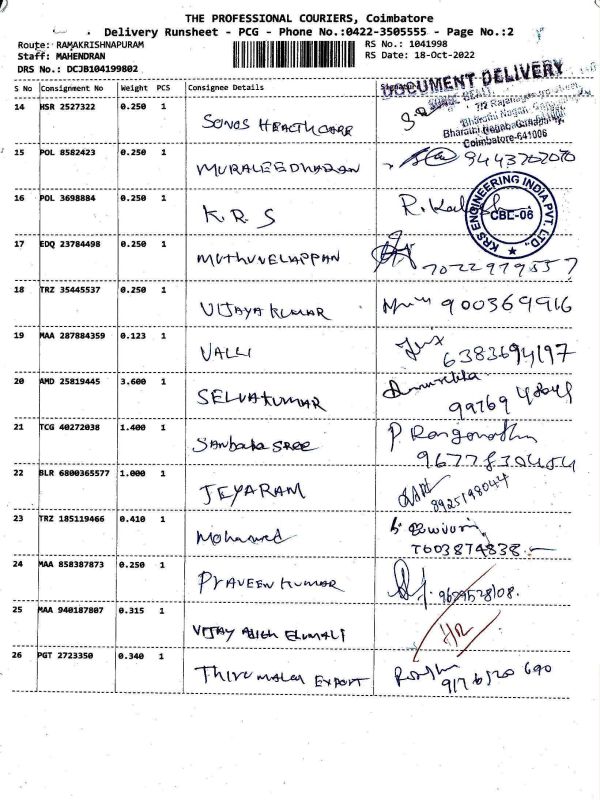 THE PROFESSIONAL COURIERS, Coimbatore
Delivery Runsheet - PCG - Phone No.:0422-3505555 - Page No.:2
Route: RAMAKRISHNAPURAM RS No.: 1041998
Staff: MAHENDRAN RS Date: 18-Oct-2022
DRS No.: DCJB104199802
DOCUMENT DELIVERY
S No Consignment No Weight PCS Consignee Details
14 HSR 2527322 0.250 1 SONOS HEALTHCARE
Coimbatore-641006
15 POL 8582423 0.250 1 MURALEEDHARAN 9443702070
16 POL 3698884 0.250 1 K.R.S
KRS ENGINEERING INDIA PVT. LTD. CBE-06
17 EDQ 23784498 0.250 1 MUTHUVELAPPAN
18 TRZ 35445537 0.250 1 VIJAYA KUMAR 900369916
19 MAA 287884359 0.123 1 VALLI
6383694197
20 AMD 25819445 3.600 1 SELVAKUMAR
21 TCG 40272038 1.400 1
22 BLR 6800365577 1.000 1 JEYARAM
8925198044
23 TRZ 185119466 0.410 1 Mohamed
24 MAA 858387873 0.250 1 PRAVEEN KUMAR
25 MAA 940187807 0.315 1 VIJAY
26 PGT 2723350 0.340 1 THIRUMALAI EXPORT